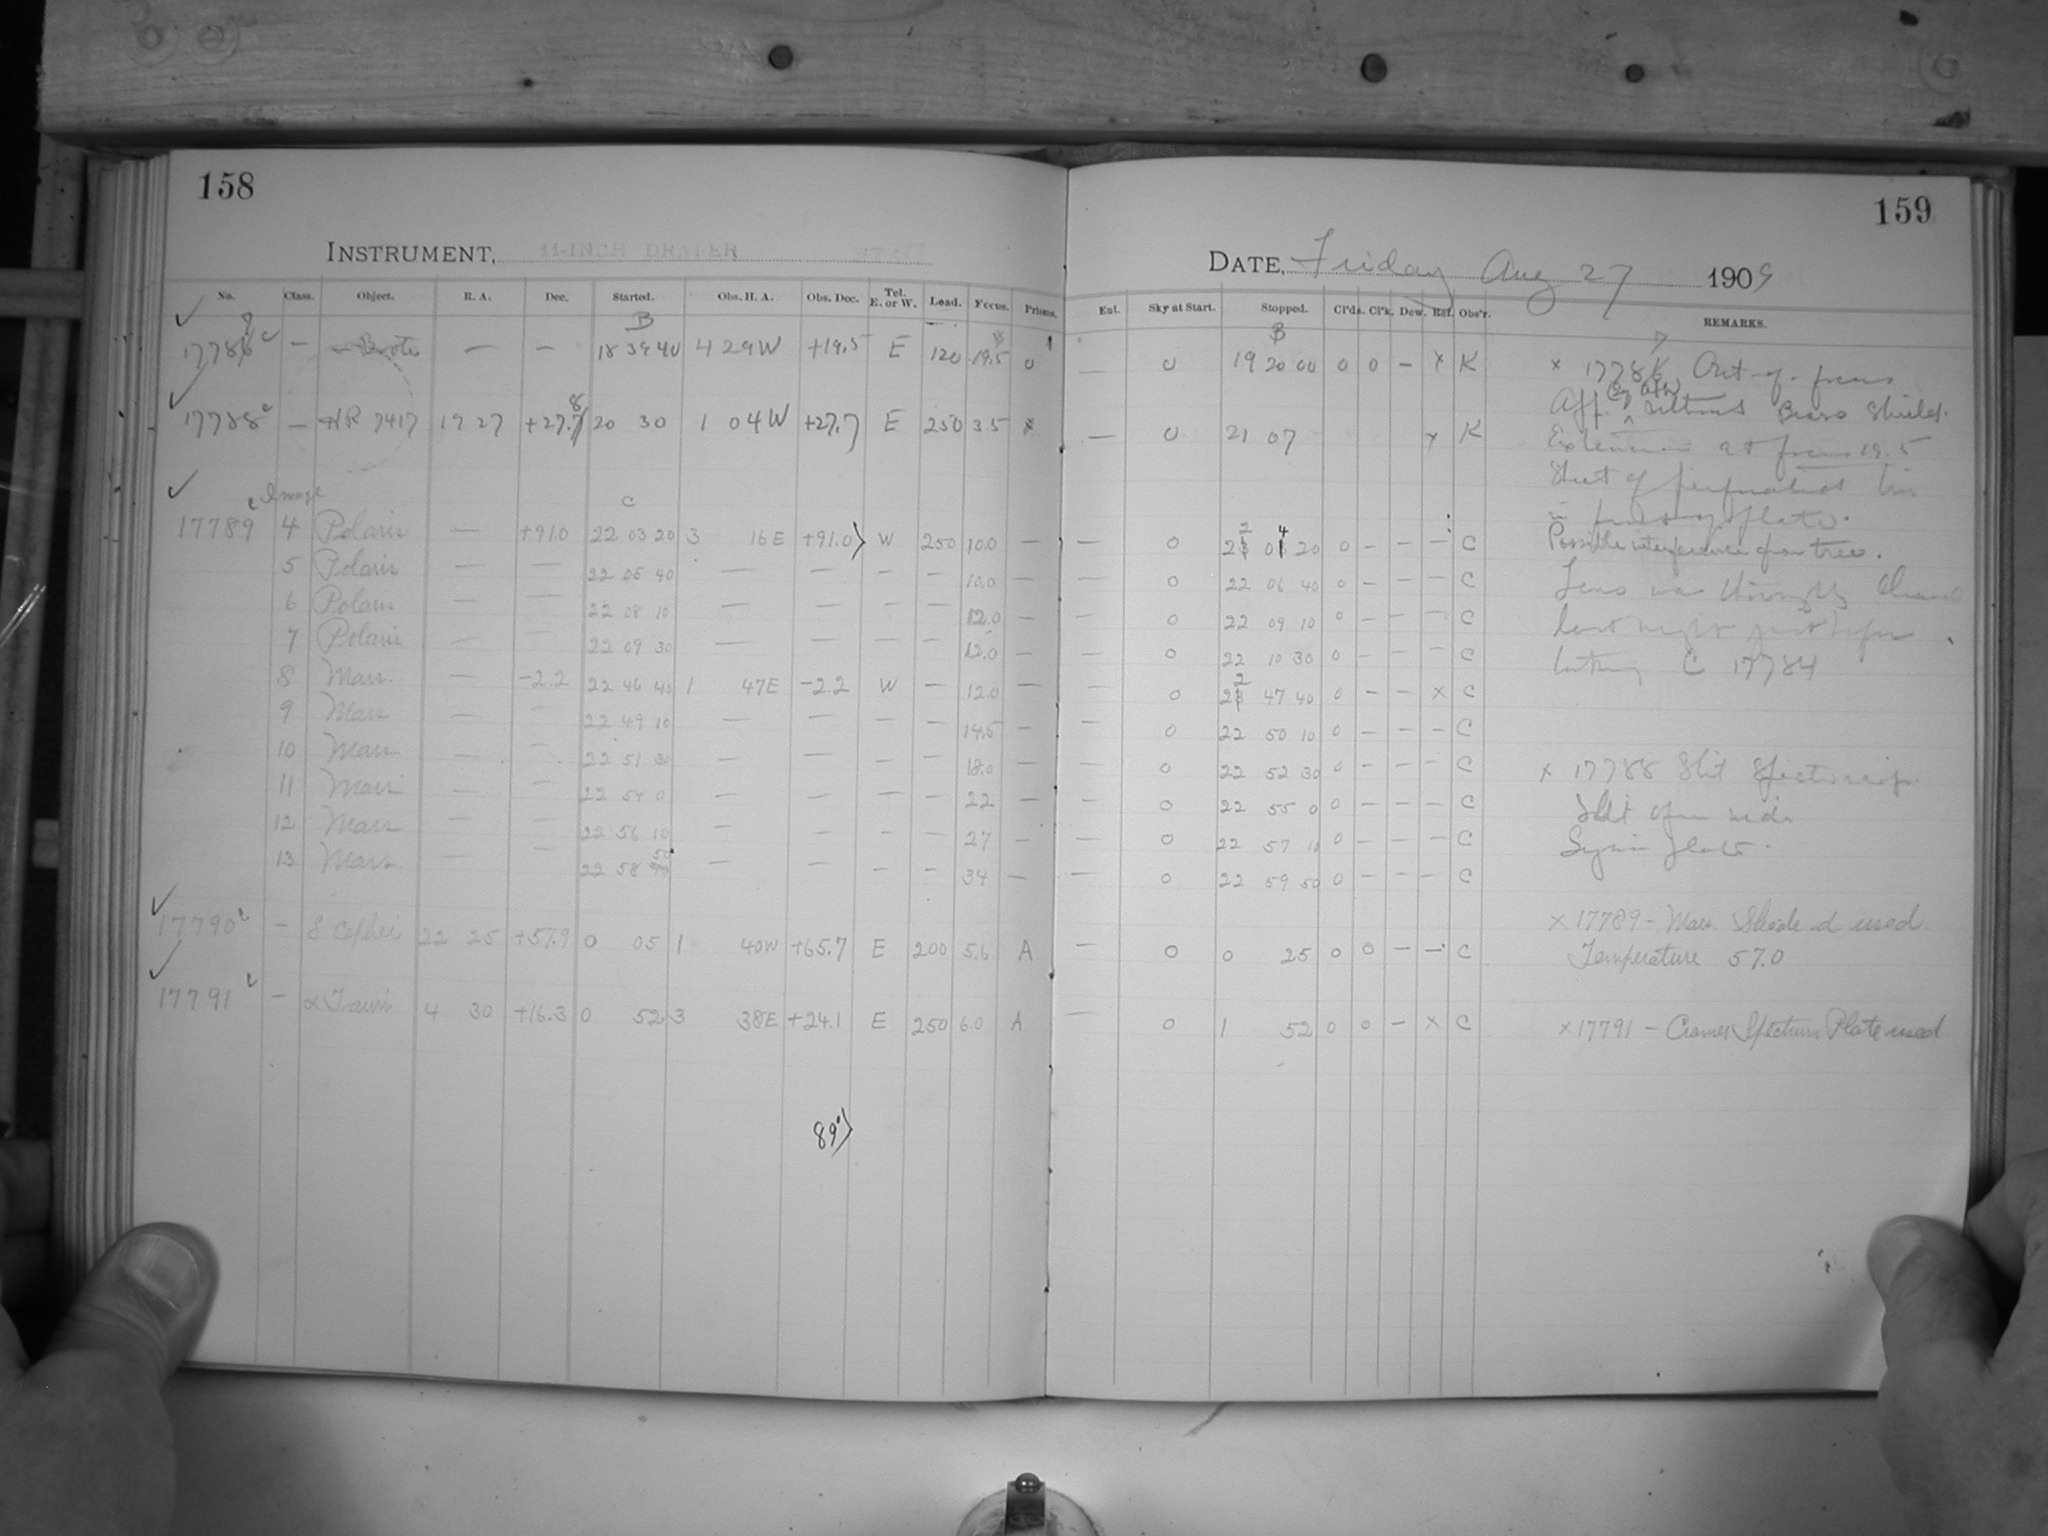 158
INSTRUMENT, 11-INCH DRAPER
No. Class. Object. R. A. Dec. Started. Obs. H. A. Obs. Dec. Tel. E. or W. Load. Focus. Prisms.
B
1778 — — — 18 39 40 4 29W +19.5 E 120 19.5 0
17788 c — HR 7417 19 27 +27.8 20 30 1 04W +27.7 E 250 3.5 x
Image C
17789 c 4 Polaris — +91.0 22 03 20 3 16E +91.0 W 250 10.0 —
5 Polaris — — 22 05 40 — — — — 10.0 —
6 Polaris — — 22 08 10 — — — — 12.0 —
7 Polaris — 22 09 30 — — — — 12.0 —
8 Mars. — -2.2 22 46 40 1 47E -2.2 W — 12.0 —
9 Mars — — 22 49 10 — — — — 14.5 —
10 Mars — — 22 51 30 — — — — 18.0 —
11 Mars — — 22 54 0 — — — — 22 —
12 Mars — — 22 56 10 — — — — 27 —
13 Mars. — — 22 58 50 — — — — 34 —
17790 c — δ Cephei 22 25 +57.9 0 05 1 40W +65.7 E 200 5.6 A
17791 c — α Tauri 4 30 +16.3 0 52 3 38E +24.1 E 250 6.0 A
89°)
159
DATE, Friday Aug 27 1909
Ent. Sky at Start. Stopped. Cl'ds. Cl'k. Dew. Ref. Obs'r. REMARKS.
B
— 0 19 20 00 0 0 — x K
— 0 21 07 x K
— 0 22 04 20 0 — — — C
— 0 22 06 40 0 — — — C
— 0 22 09 10 0 — — — C
— 0 22 10 30 0 — — — C
— 0 22 47 40 0 — — x C
— 0 22 50 10 0 — — — C
— 0 22 52 30 0 — — — C
— 0 22 55 0 0 — — — C
— 0 22 57 10 0 — — — C
— 0 22 59 50 0 — — — C
— 0 0 25 0 0 — — C
— 0 1 52 0 0 — x C
x 1778 Out of focus
Brass Shield.
Extension at focus 19.5
Sheet of perforated tin
in front of plate.
Possible interference from tree.
Lens was
last night just before
C 17784
x 17788 Slit Spectroscope.
Slit open wide
plate.
x 17789 - Mars. Shade d used.
Temperature 57.0
x 17791 - Cramer Spectrum Plate used